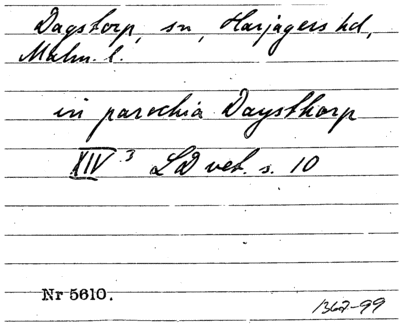 Dagstorp, sn, Harjagers hd,
Malm. l.
in parochia Daysthorp
XIV 3 LD vet. s. 10
Nr 5610.
1367-99